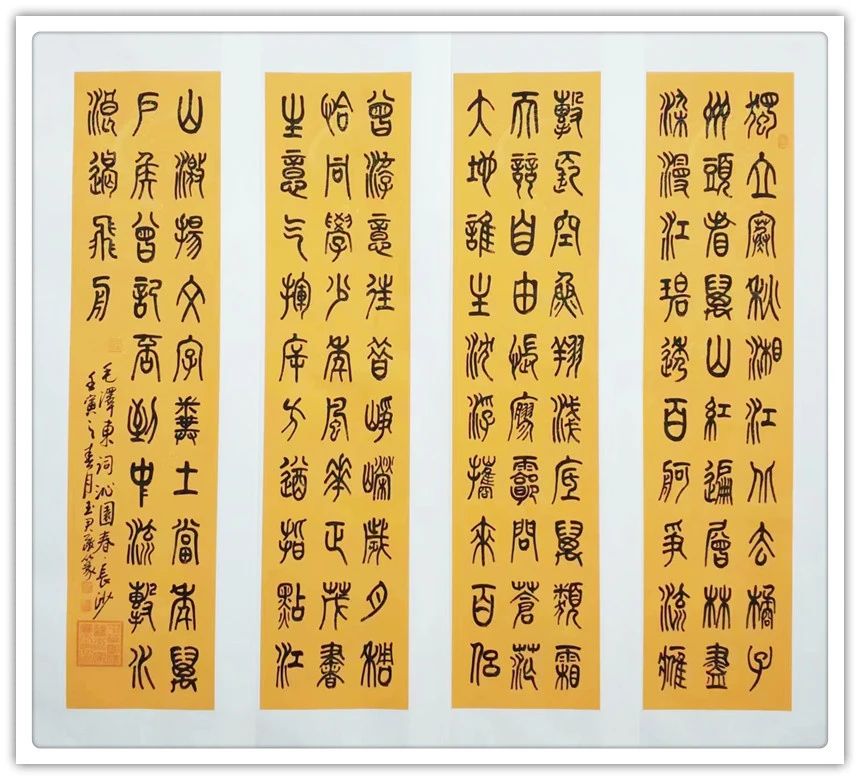 獨立寒秋湘江北去橘子
州頭看萬山紅遍層林盡
染漫江碧透百舸爭流鷹
擊長空魚翔淺底萬類霜
天競自由悵寥廓問蒼茫
大地誰主沈浮攜來百侶
曾游意往昔崢嶸歲月稠
恰同學少年風華正茂書
生意气揮斥方遒指點江
山激揚文字糞土當年萬
戶侯曾記否到中流擊水
浪遏飛舟
毛澤東詞沁園春·長沙
壬寅之春月篆